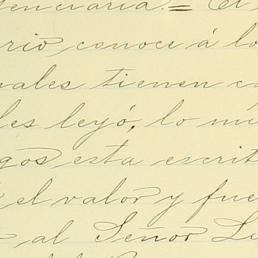 genciaria.= El
ario conoce á lo
uales tienen c
les leyó, lo mi
gos esta escrit
el valor y fue
al Señor Lu